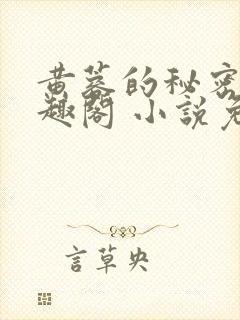 黄蓉的秘密
趣閣 小說免
言草央